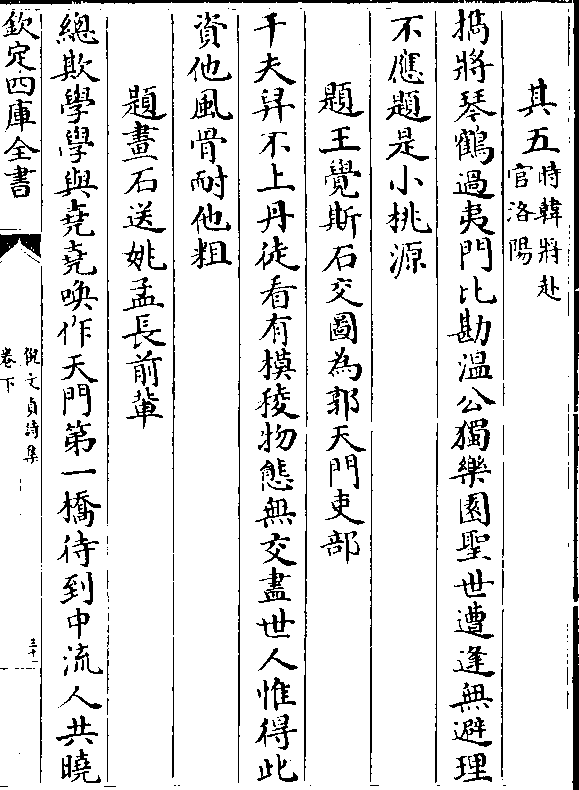 其五時韓將赴官洛陽
攜將琴鶴過夷門比勘溫公獨樂園聖世遭逢無避理
不應題是小桃源
題王覺斯石交圖為郭天門吏部
千夫舁不上丹徒看有模稜物態無交盡世人惟得此
資他風骨耐他粗
題畫石送姚孟長前輩
總欺學學與堯堯喚作天門第一橋待到中流人共曉
欽定四庫全書
倪文貞詩集
卷下
三十一